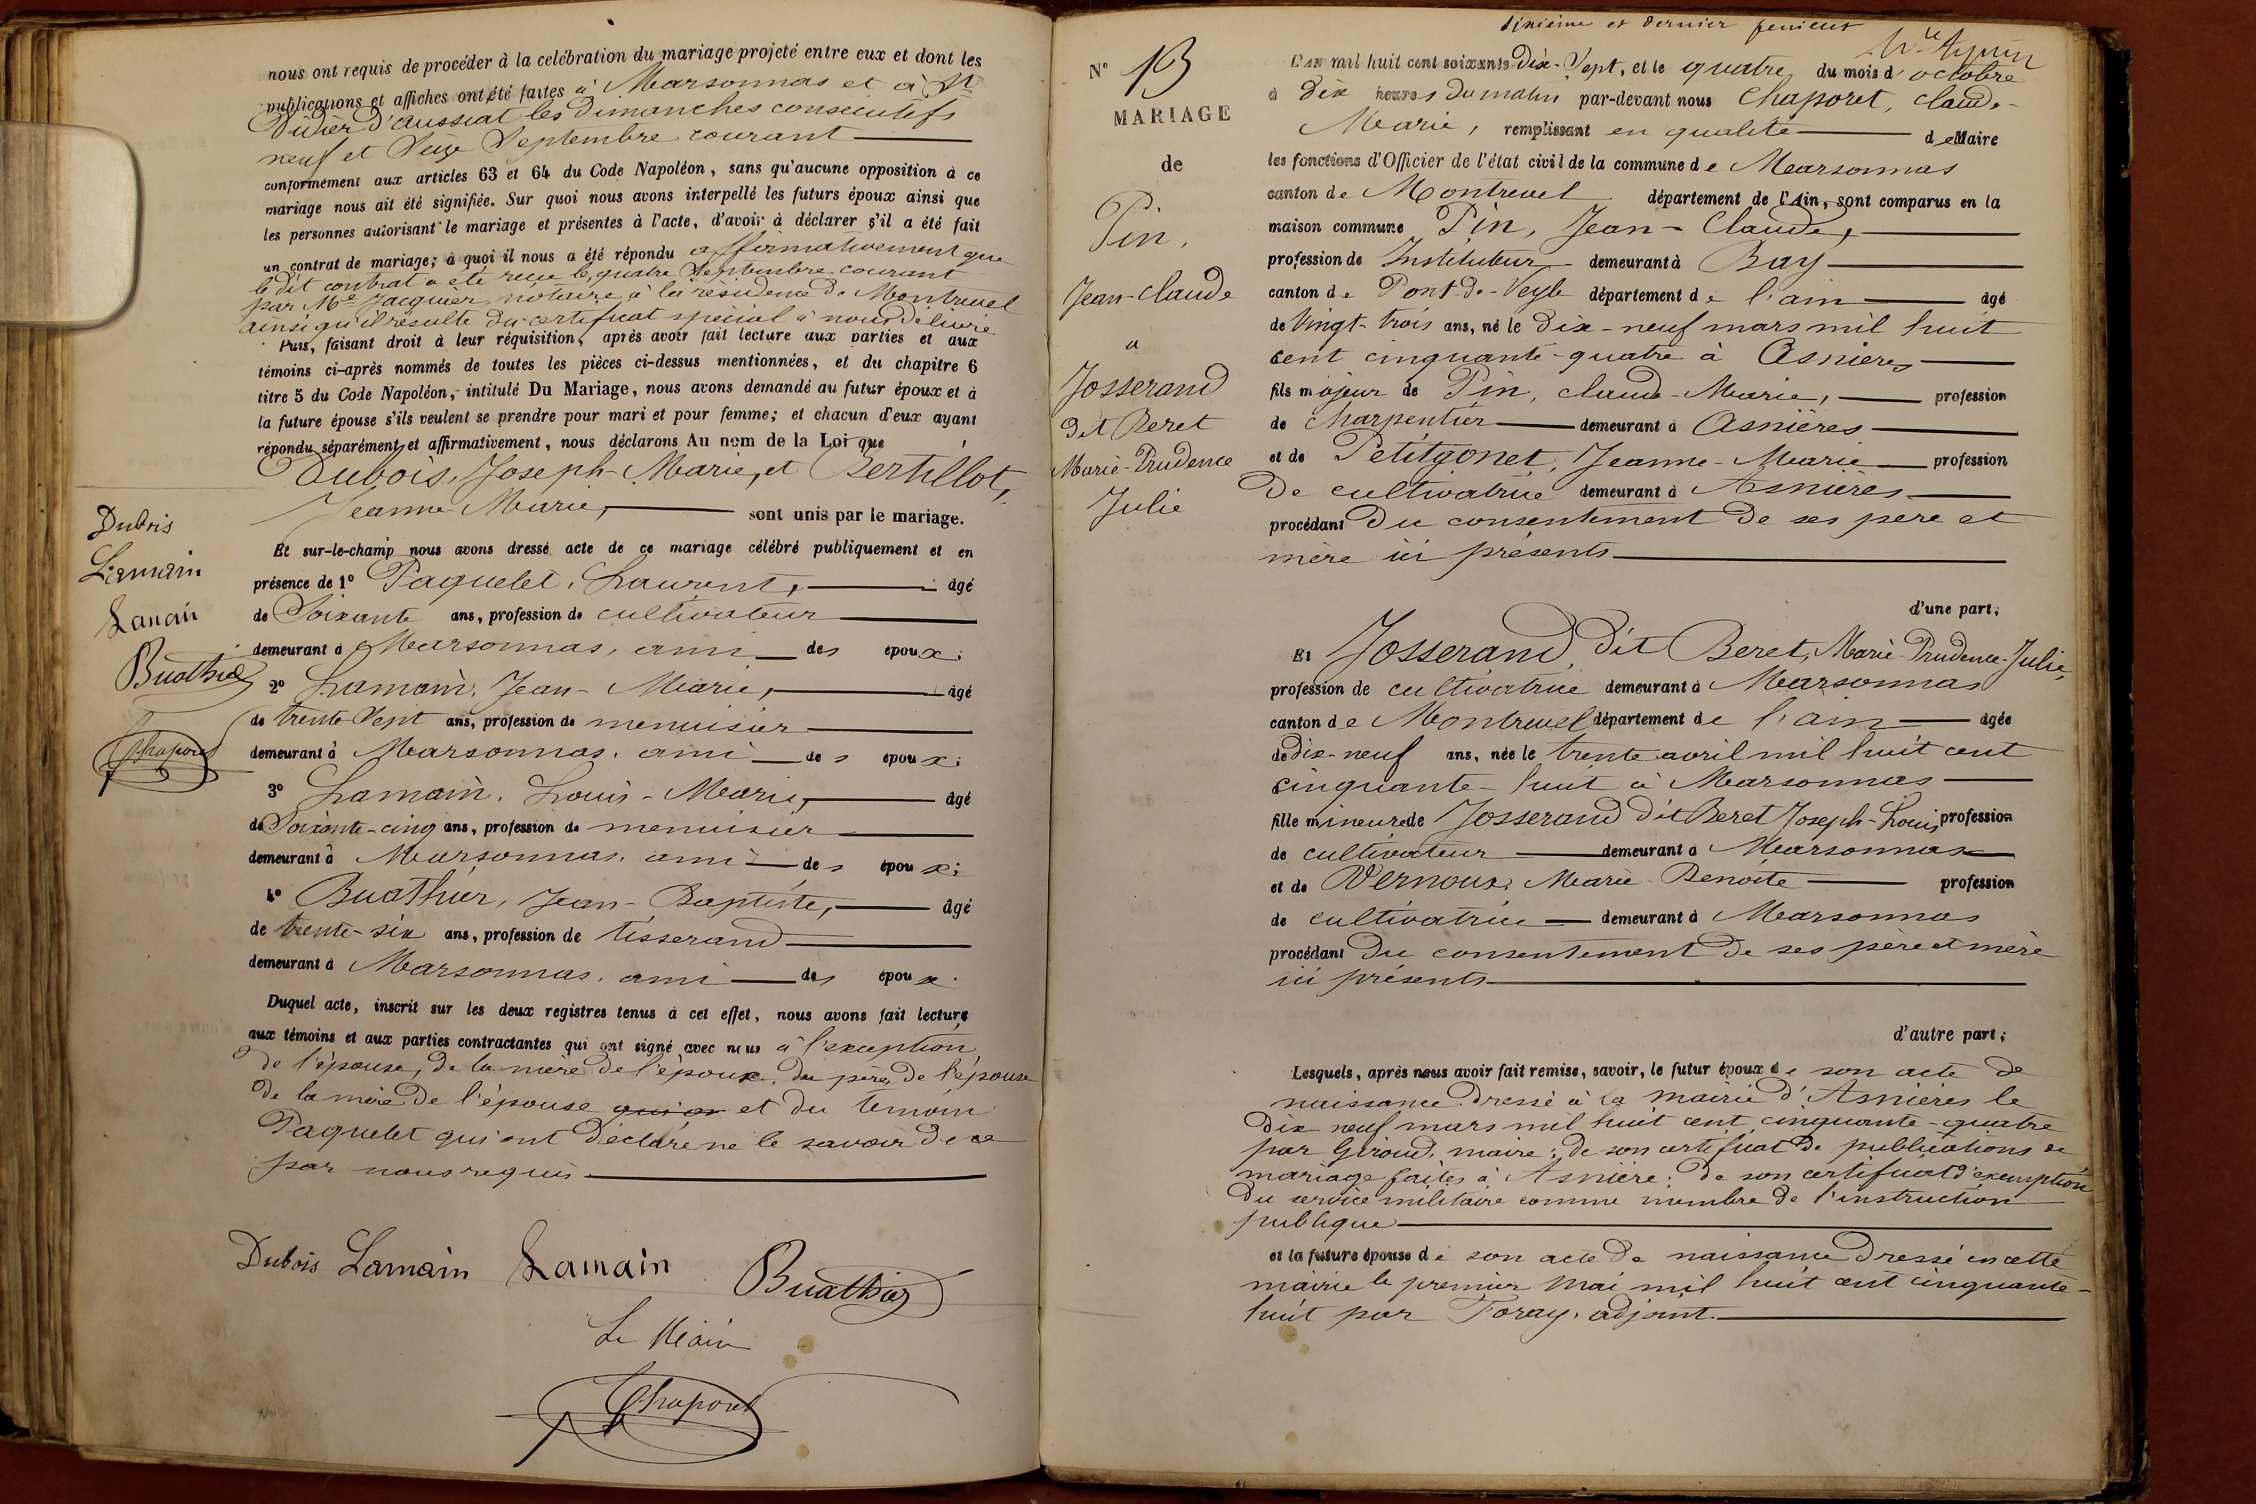 nous ont requis de procéder à la celébration du mariage projeté entre eux et dont les
publications et affiches ont été faites à Marsonnas et à St
Didier d'aussiat les Dimanches consécutifs
neuf et Seize Septembre courant
conformement aux articles 63 et 64 du Code Napoléon, sans qu'aucune opposition à ce
mariage nous ait été signifiée. Sur quoi nous avons interpellé les futurs époux ainsi que
les personnes autorisant le mariage et présentes à l'acte, d'avoir à déclarer s'il a été fait
un contrat de mariage; à quoi il nous a été répondu affirmativement que
le dit contrat a été reçu le quatre Septembre courant
par Me Jacquier, notaire, à la résidence de Montrevel
ainsi qu'il résulte du certificat spécial à nous délivré
Puis, faisant droit à leur réquisition, après avoir fait lecture aux parties et aux
témoins ci-après nommés de toutes les pièces ci-dessus mentionnées, et du chapitre 6
titre 5 du Code Napoléon, intitulé Du Mariage, nous avons demandé au futur époux et à
la future épouse s'ils veulent se prendre pour mari et pour femme; et chacun d'eux ayant
répondu séparément et affirmativement, nous déclarons Au nom de la Loi que
Dubois, Joseph-Marie, et Bertillot,
Jeanne Marie, sont unis par le mariage.
Et sur-le-champ nous avons dressé acte de ce mariage célébré publiquement et en
présence de 1° Paquelet, Laurent, âgé
de Soixante ans, profession de cultivateur
demeurant à Marsonnas, ami des époux;
2° Lamain, Jean-Marie, âgé
de trente Sept ans, profession de menuisier
demeurant à Marsonnas, ami des époux;
3° Lamain, Louis-Marie, âgé
de Soixante-cinq ans, profession de menuisier
demeurant à Marsonnas, ami des époux;
4° Buathier, Jean-Baptiste, âgé
de trente-six ans, profession de tisserand
demeurant à Marsonnas, ami des époux.
Duquel acte, inscrit sur les deux registres tenus à cet effet, nous avons fait lecture
aux témoins et aux parties contractantes qui ont signé avec nous à l'exception
de l'épouse, de la mère de l'époux, du père de l'épouse
de la mère de l'épouse et du témoin
Paquelet qui ont déclaré ne le savoir de ce
par nous requis
Dubois Lamain Lamain Buathier
Le Maire
Chaporet
Dubois
Lamain
Lamain
Buathier
Chaporet
dixième et dernier feuillet
N° 13
MARIAGE
de
Pin,
Jean-Claude
à
Josserand
dit Beret
Marie-Prudence
Julie
L'an mil huit cent soixante-Dix-Sept, et le quatre du mois d'octobre
à dix heures du matin par-devant nous Chaporet, Claude-
Marie, remplissant en qualité de Maire
les fonctions d'Officier de l'état civil de la commune de Marsonnas
canton de Montrevel département de l'Ain, sont comparus en la
maison commune Pin, Jean-Claude,
profession de Instituteur demeurant à Bay
canton de Pont-de-Veyle département de l'ain âgé
de Vingt-trois ans, né le dix-neuf mars mil huit
cent cinquante-quatre à Asnières
fils majeur de Pin, Claude-Marie, profession
de Charpentier demeurant à Asnières
et de Petitgonet, Jeanne-Marie profession
De cultivatrice demeurant à Asnières
procédant Du consentement de ses père et
mère ici présents
d'une part;
Et Josserand, dit Beret, Marie-Prudence-Julie,
profession de cultivatrice demeurant à Marsonnas
canton de Montrevel département de l'ain âgée
de dix-neuf ans, née le trente avril mil huit cent
cinquante-huit à Marsonnas
fille mineure de Josserand dit Beret Joseph-Louis profession
de cultivateur demeurant à Marsonnas
et de Vernoux, Marie Benoîte profession
de cultivatrice demeurant à Marsonnas
procédant du consentement de ses père et mère
ici présents
d'autre part;
Lesquels, après nous avoir fait remise, savoir, le futur époux de son acte de
naissance dressé à la mairie d'Asnières le
dix neuf mars mil huit cent cinquante-quatre
par Giroud, maire; de son certificat de publications de
mariage faites à Asnière; de son certificat d'exemption
du service militaire comme membre de l'instruction
publique
et la future épouse de son acte de naissance dressé en cette
mairie le premier Mai mil huit cent cinquante-
huit par Foray, adjoint.